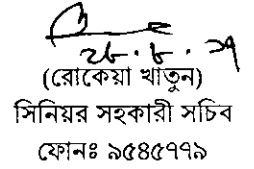 (রোকেয়া খাতুন)
সিনিয়র সহকারী সচিব
ফোনঃ ৯৫৪৫৭৭৯